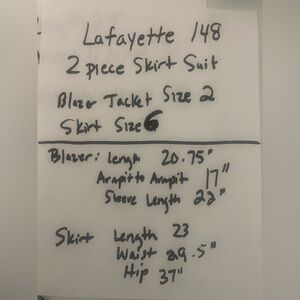 Lafayette 148
2 piece Skirt Suit
Blazer Jacket Size 2
Skirt Size 6
Blazer: Length 20.75"
Armpit to Armpit 17"
Sleeve Length 22"
Skirt Length 23
Waist 29.5"
Hip 37"